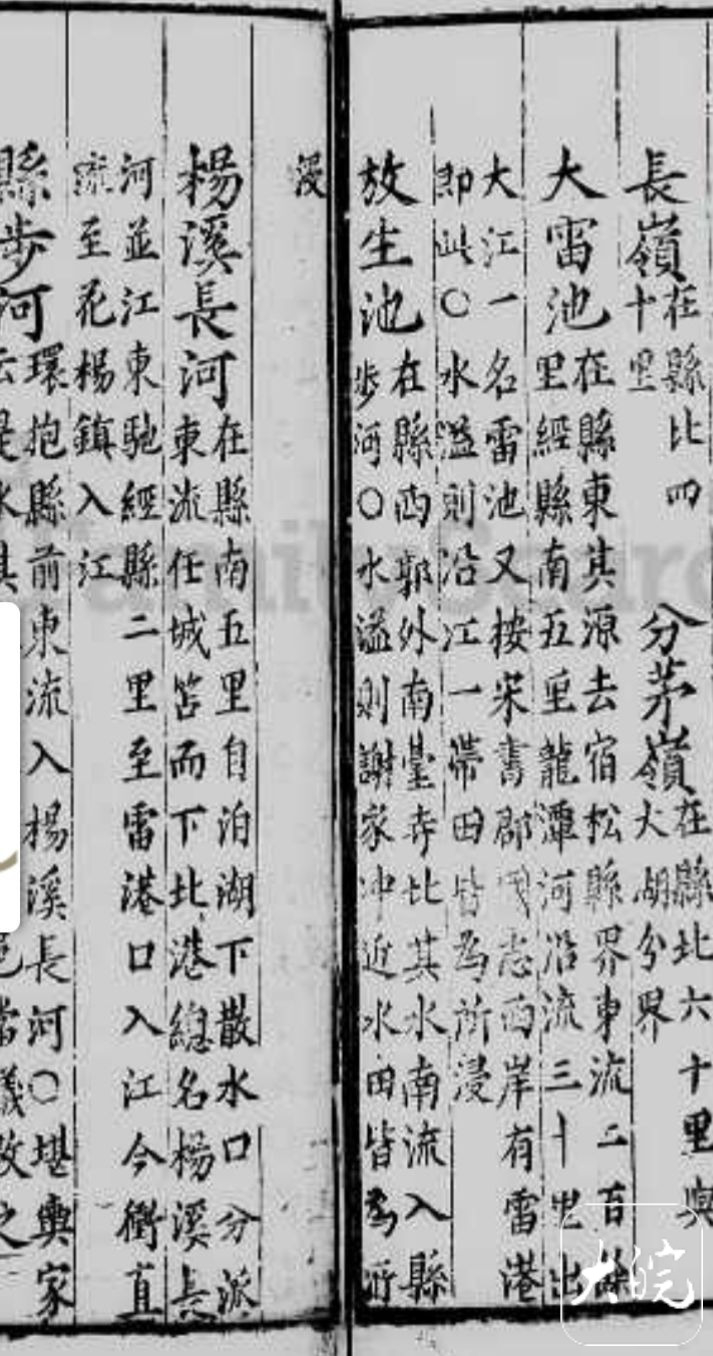 長嶺在縣比四
十里
分茅嶺在縣北六十里與
大湖分界
大雷池在縣東其源去宿松縣界東流二百餘
里經縣南五里龍潭河沿流三十里出
大江一名雷池又按宋書郡國志西岸有雷港
即此○水溢則沿江一帶田皆為所浸
放生池在縣西郭外南臺寺比其水南流入縣
步河○水溢則謝家冲近水田皆為所
浸
楊溪長河在縣南五里自泊湖下散水口分派
東流任城笤而下北港總名楊溪長
河並江東馳經縣二里至雷港口入江今衝直
流至花楊鎮入江
縣步河環抱縣前東流入楊溪長河○堪輿家
云是水其邑當議改之
大皖